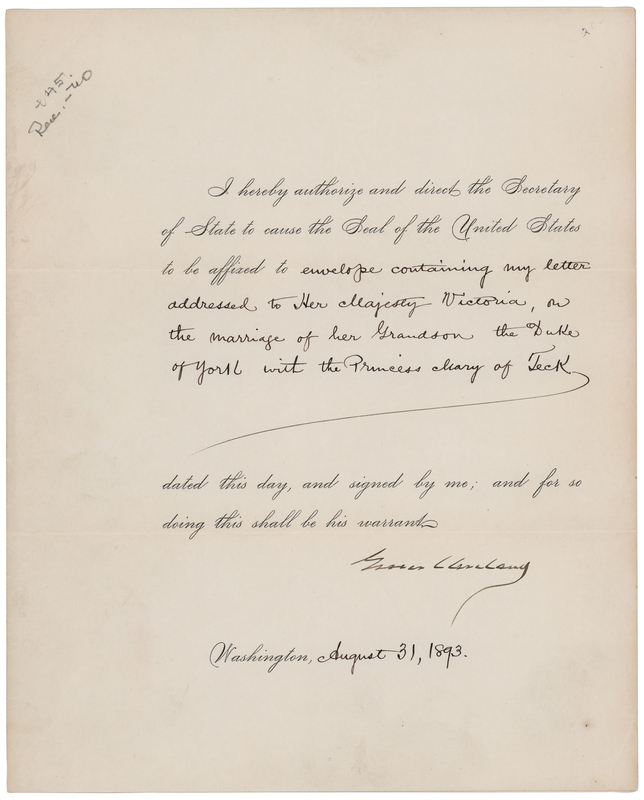 I hereby authorize and direct the Secretary
of State to cause the Seal of the United States
to be affixed to envelope containing my letter
addressed to Her Majesty Victoria, on
the marriage of her Grandson the Duke
of York with the Princess Mary of Teck
dated this day, and signed by me; and for so
doing this shall be his warrant
Grover Cleveland
Washington, August 31, 1893.